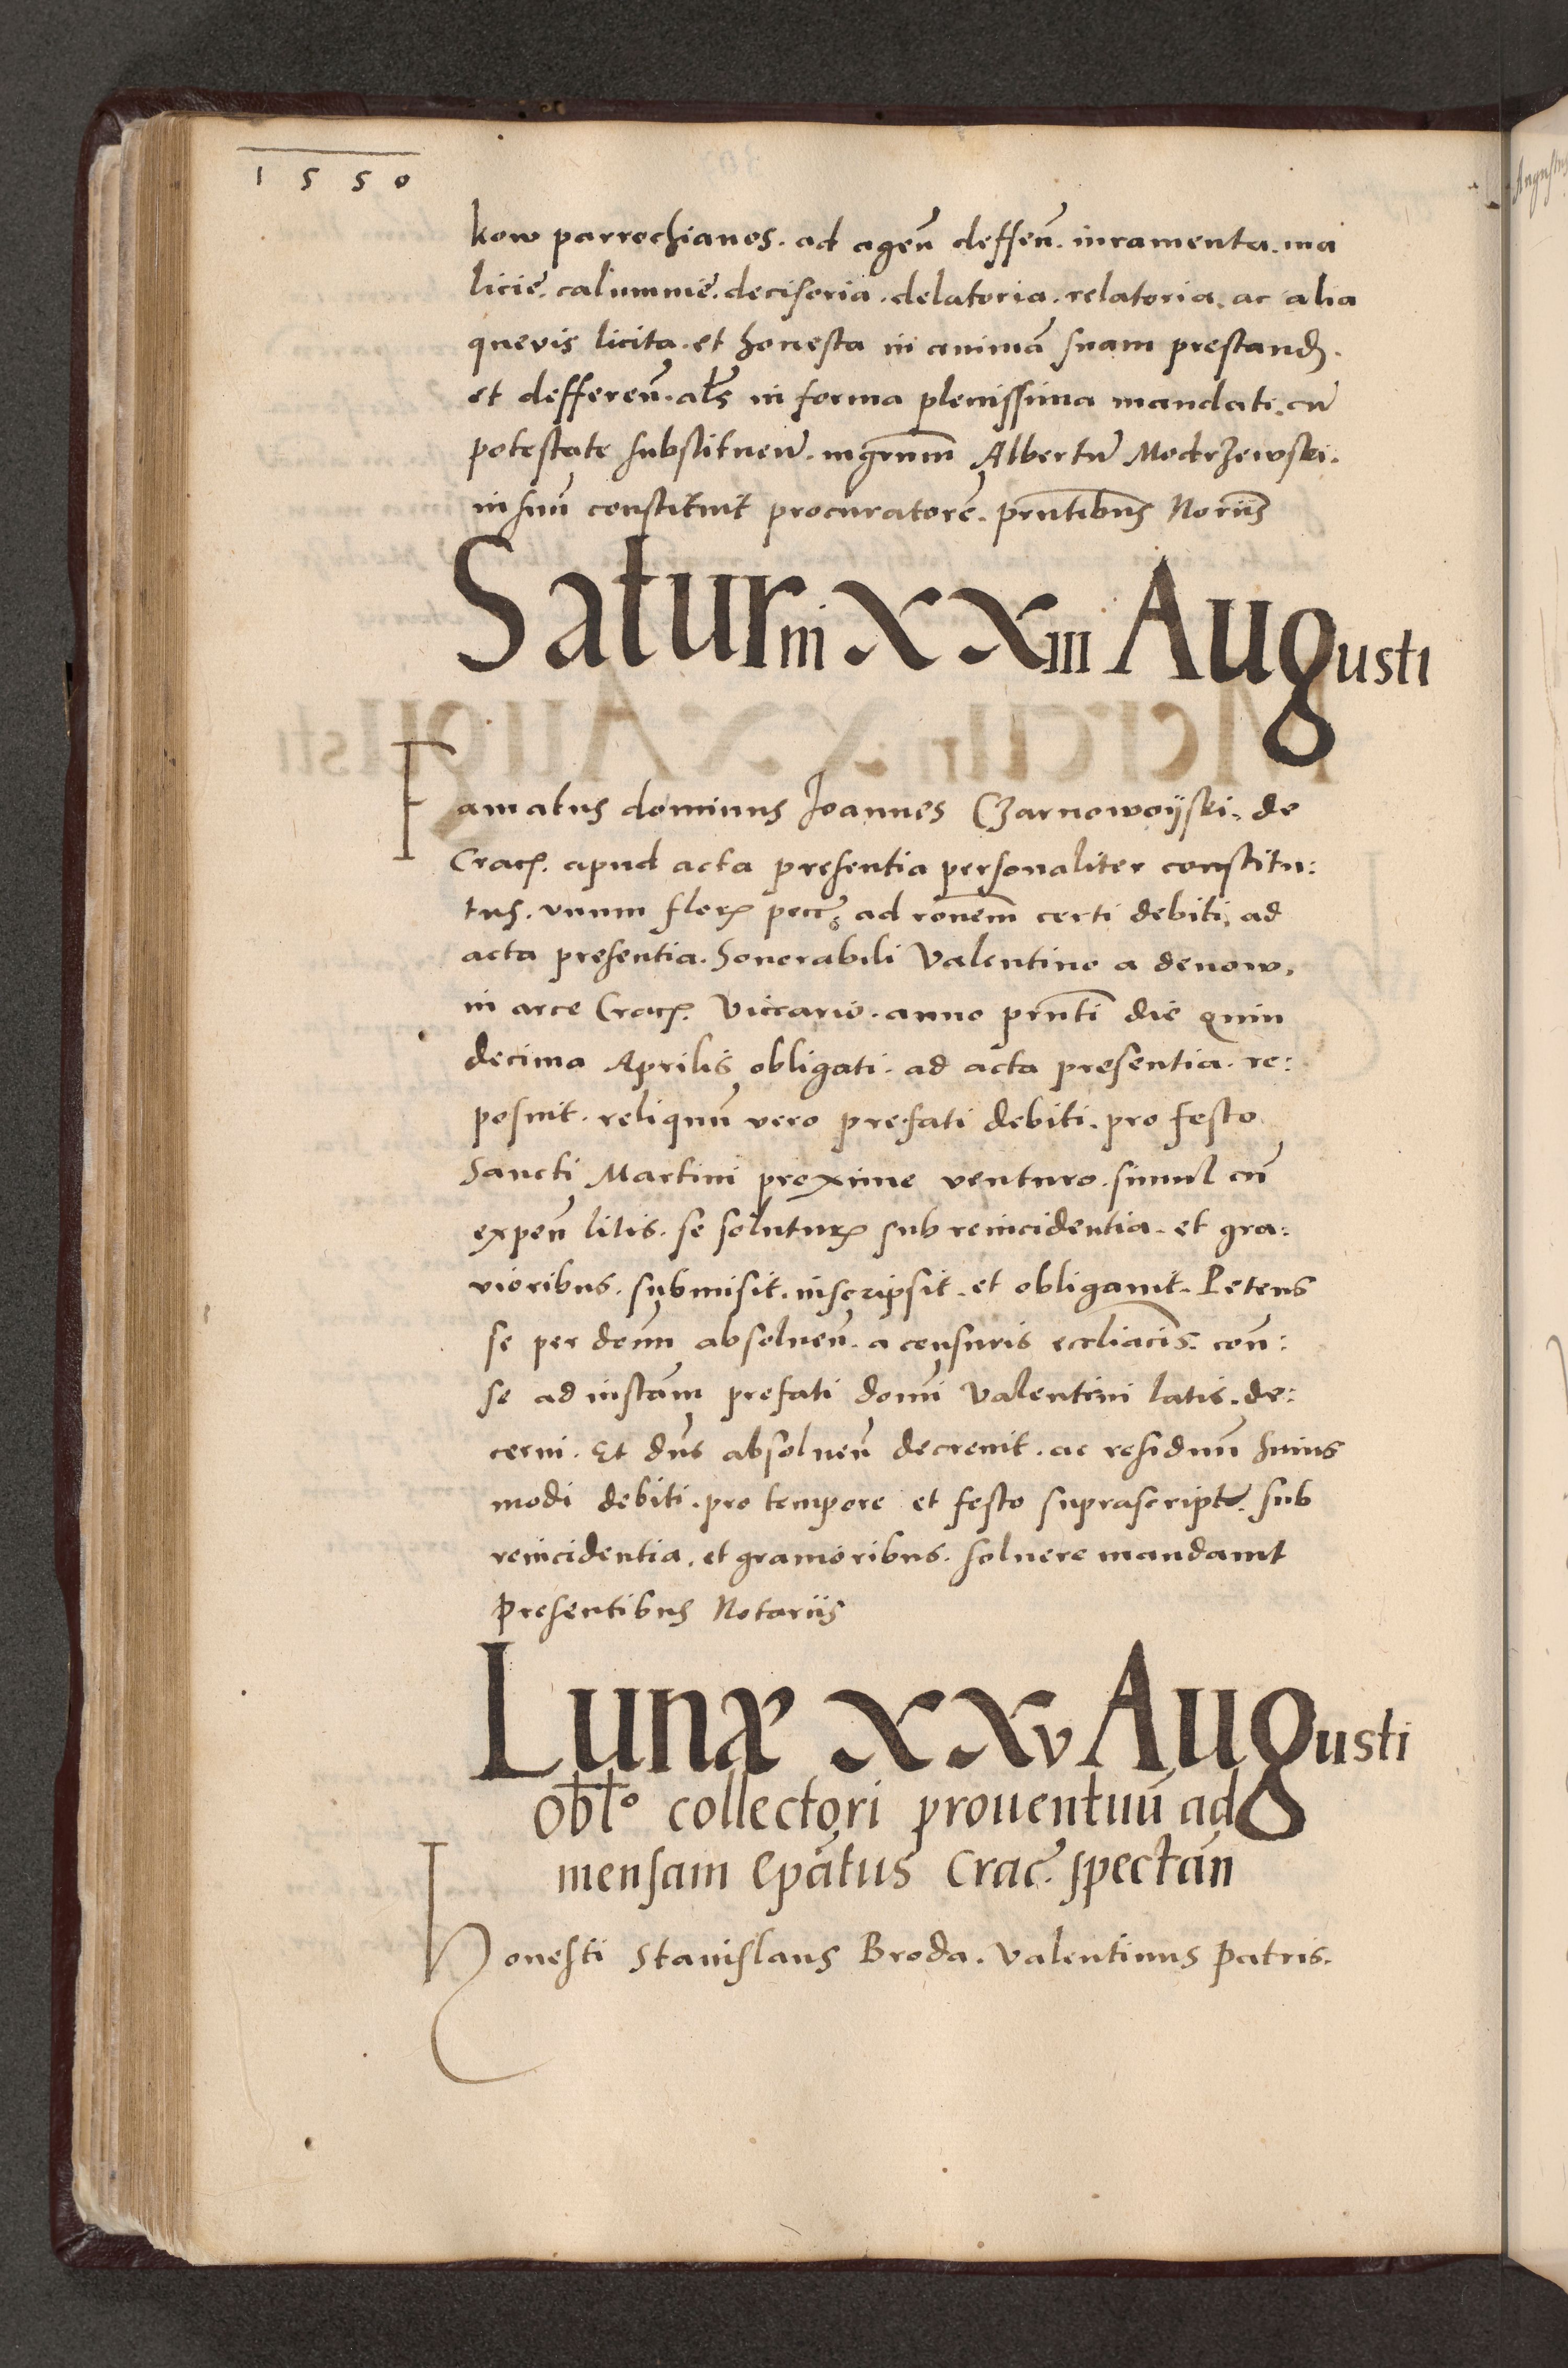 1550
kow parrochianos. ad agen̄ deffen̄. iuramenta. ma
licie. calumnie. decisoria. delatoria. relatoria. ac alia
quevis licita. et honesta in animā suam prestand.
et defferen̄. al's in forma plenissima mandati. cū
potestate substituen̄. mgr̄um Albertū Modrzewski.
in suū constituit procuratorē. prn̄tibus Norīis
Saturni XXIII Augusti
Famatus dominus Joannes Czarnowoyski. de
Crac. apud acta presentia personaliter constitu:
tus. vnum flor. pecc. ad ronem certi debiti, ad
acta presentia. honorabili Valentino a denow.
in arce Crac. Viccario. anno prn̄ti die quin
decima Aprilis obligati. ad acta presentia. re:
posuit. reliquū vero prefati debiti. pro festo
Sancti Martini proxime venturo. simul cū
expen̄ litis. se soluturz sub reincidentia. et gra:
vioribus. submisit. inscripsit. et obligauit. Petens
se per dnūm absoluen̄. a censuris eccliacis. con̄:
se ad instam̄ prefati domī Valentini latis. de:
cerni. Et dn̄s absoluen̄ decreuit. ac residuū huius
modi debiti. pro tempore et festo suprascripto. sub
reincidentia. et grauioribus. soluere mandauit
Presentibus Notariis
Lunæ XXV Augusti
Obłło collectori prouentuū ad
mensam Epātus Crac. spectān
Honesti Stanislaus Broda. Valentinus Patris.
Augustus